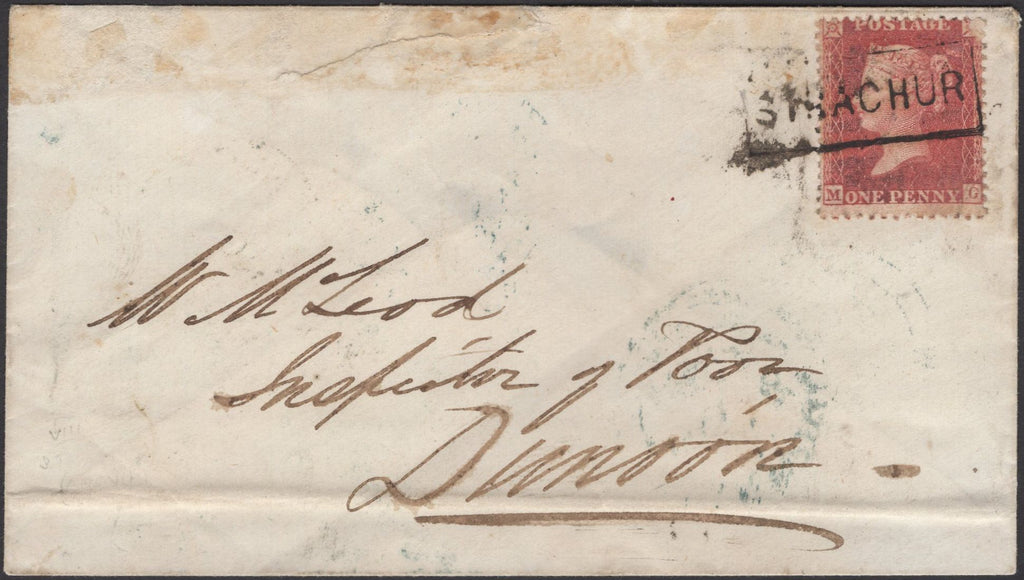 POSTAGE
STRACHUR
M ONE PENNY G
W McLeod
Inspector of Poor
Dunoon